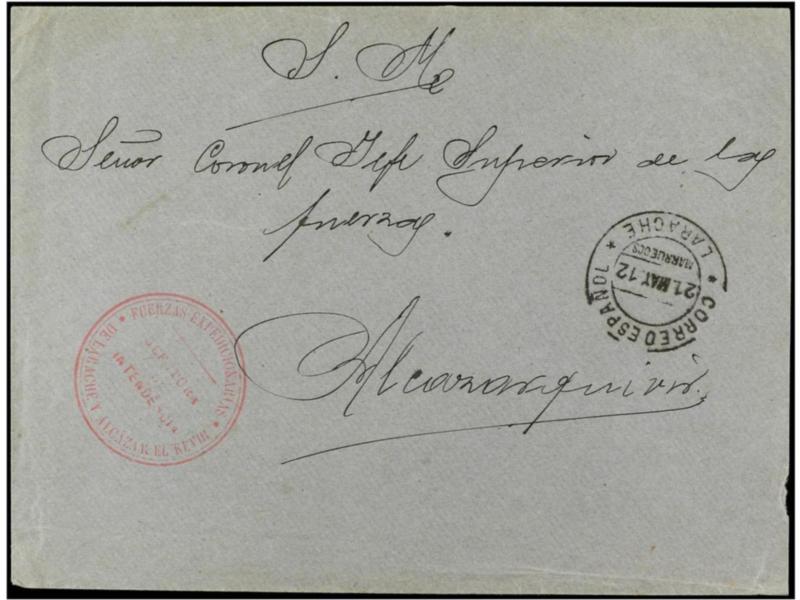 S. M.
Señor Coronel Jefe Superior de las
fuerzas.
Alcazarquivir.
CORREO ESPAÑOL
* LARACHE *
MARRUECOS
21.MAY.12
* FUERZAS EXPEDICIONARIAS *
DE LARACHE A ALCAZAR EL KEVIR
INTENDENCIA